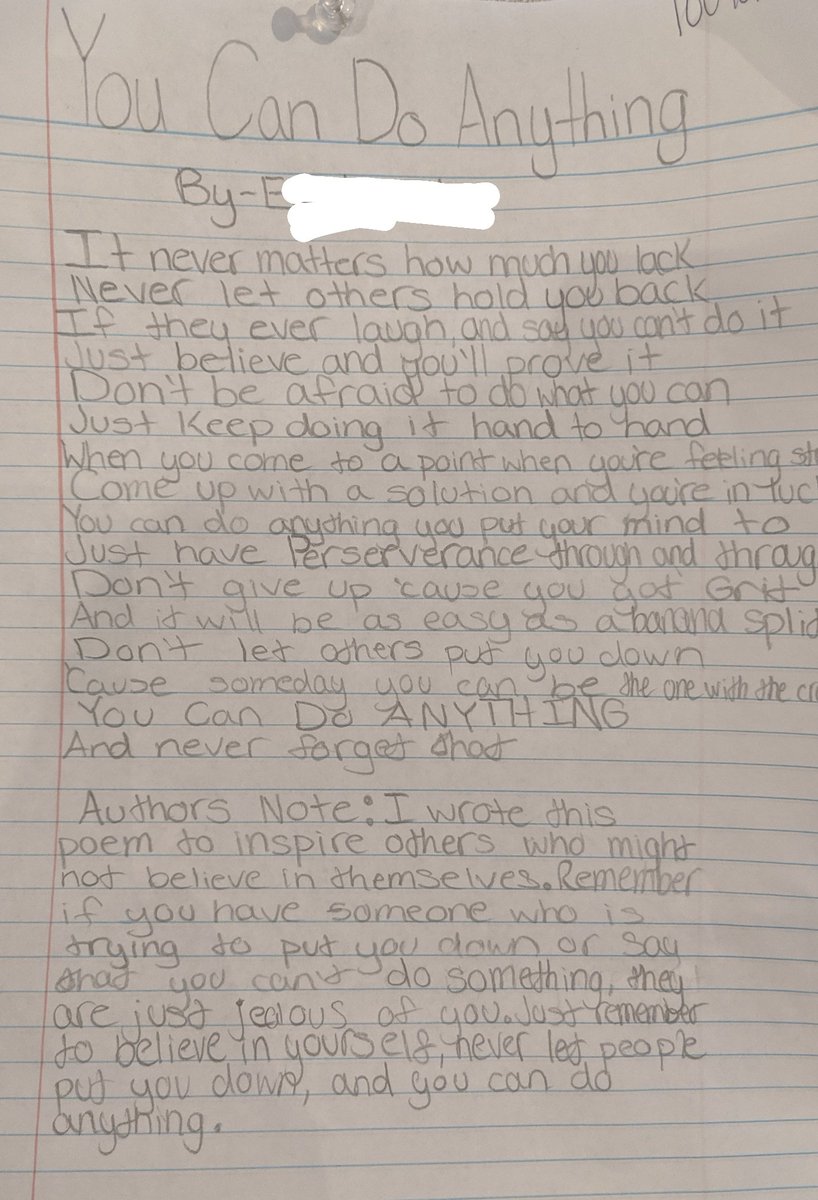 You Can Do Anything
By-E
It never matters how much you lack
Never let others hold you back
If they ever laugh, and say you can't do it
Just believe and you'll prove it
Don't be afraid to do what you can
Just Keep doing it hand to hand
When you come to a point when you're feeling
Come up with a solution and you're in
You can do anything you put your mind to
Just have Perserverance through and
Don't give up 'cause you got Grit
And it will be as easy as a banana
Don't let others put you down
Cause someday you can be the one with the
You Can Do ANYTHING
And never forget that
Authors Note: I wrote this
poem to inspire others who might
not believe in themselves. Remember
if you have someone who is
trying to put you down or say
that you can't do something, they
are just jealous of you. Just remember
to believe in yourself, never let people
put you down, and you can do
anything.